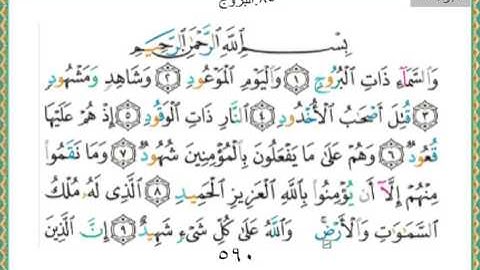 ٨٥.البروج
بِسْمِ اللَّهِ الرَّحْمَٰنِ الرَّحِيمِ
وَالسَّمَاءِ ذَاتِ الْبُرُوجِ ١ وَالْيَوْمِ الْمَوْعُودِ ٢ وَشَاهِدٍ وَمَشْهُودٍ
٣ قُتِلَ أَصْحَابُ الْأُخْدُودِ ٤ النَّارِ ذَاتِ الْوَقُودِ ٥ إِذْ هُمْ عَلَيْهَا
قُعُودٌ ٦ وَهُمْ عَلَىٰ مَا يَفْعَلُونَ بِالْمُؤْمِنِينَ شُهُودٌ ٧ وَمَا نَقَمُوا
مِنْهُمْ إِلَّا أَن يُؤْمِنُوا بِاللَّهِ الْعَزِيزِ الْحَمِيدِ ٨ الَّذِي لَهُ مُلْكُ
السَّمَاوَاتِ وَالْأَرْضِ وَاللَّهُ عَلَىٰ كُلِّ شَيْءٍ شَهِيدٌ ٩ إِنَّ الَّذِينَ
٥٩٠